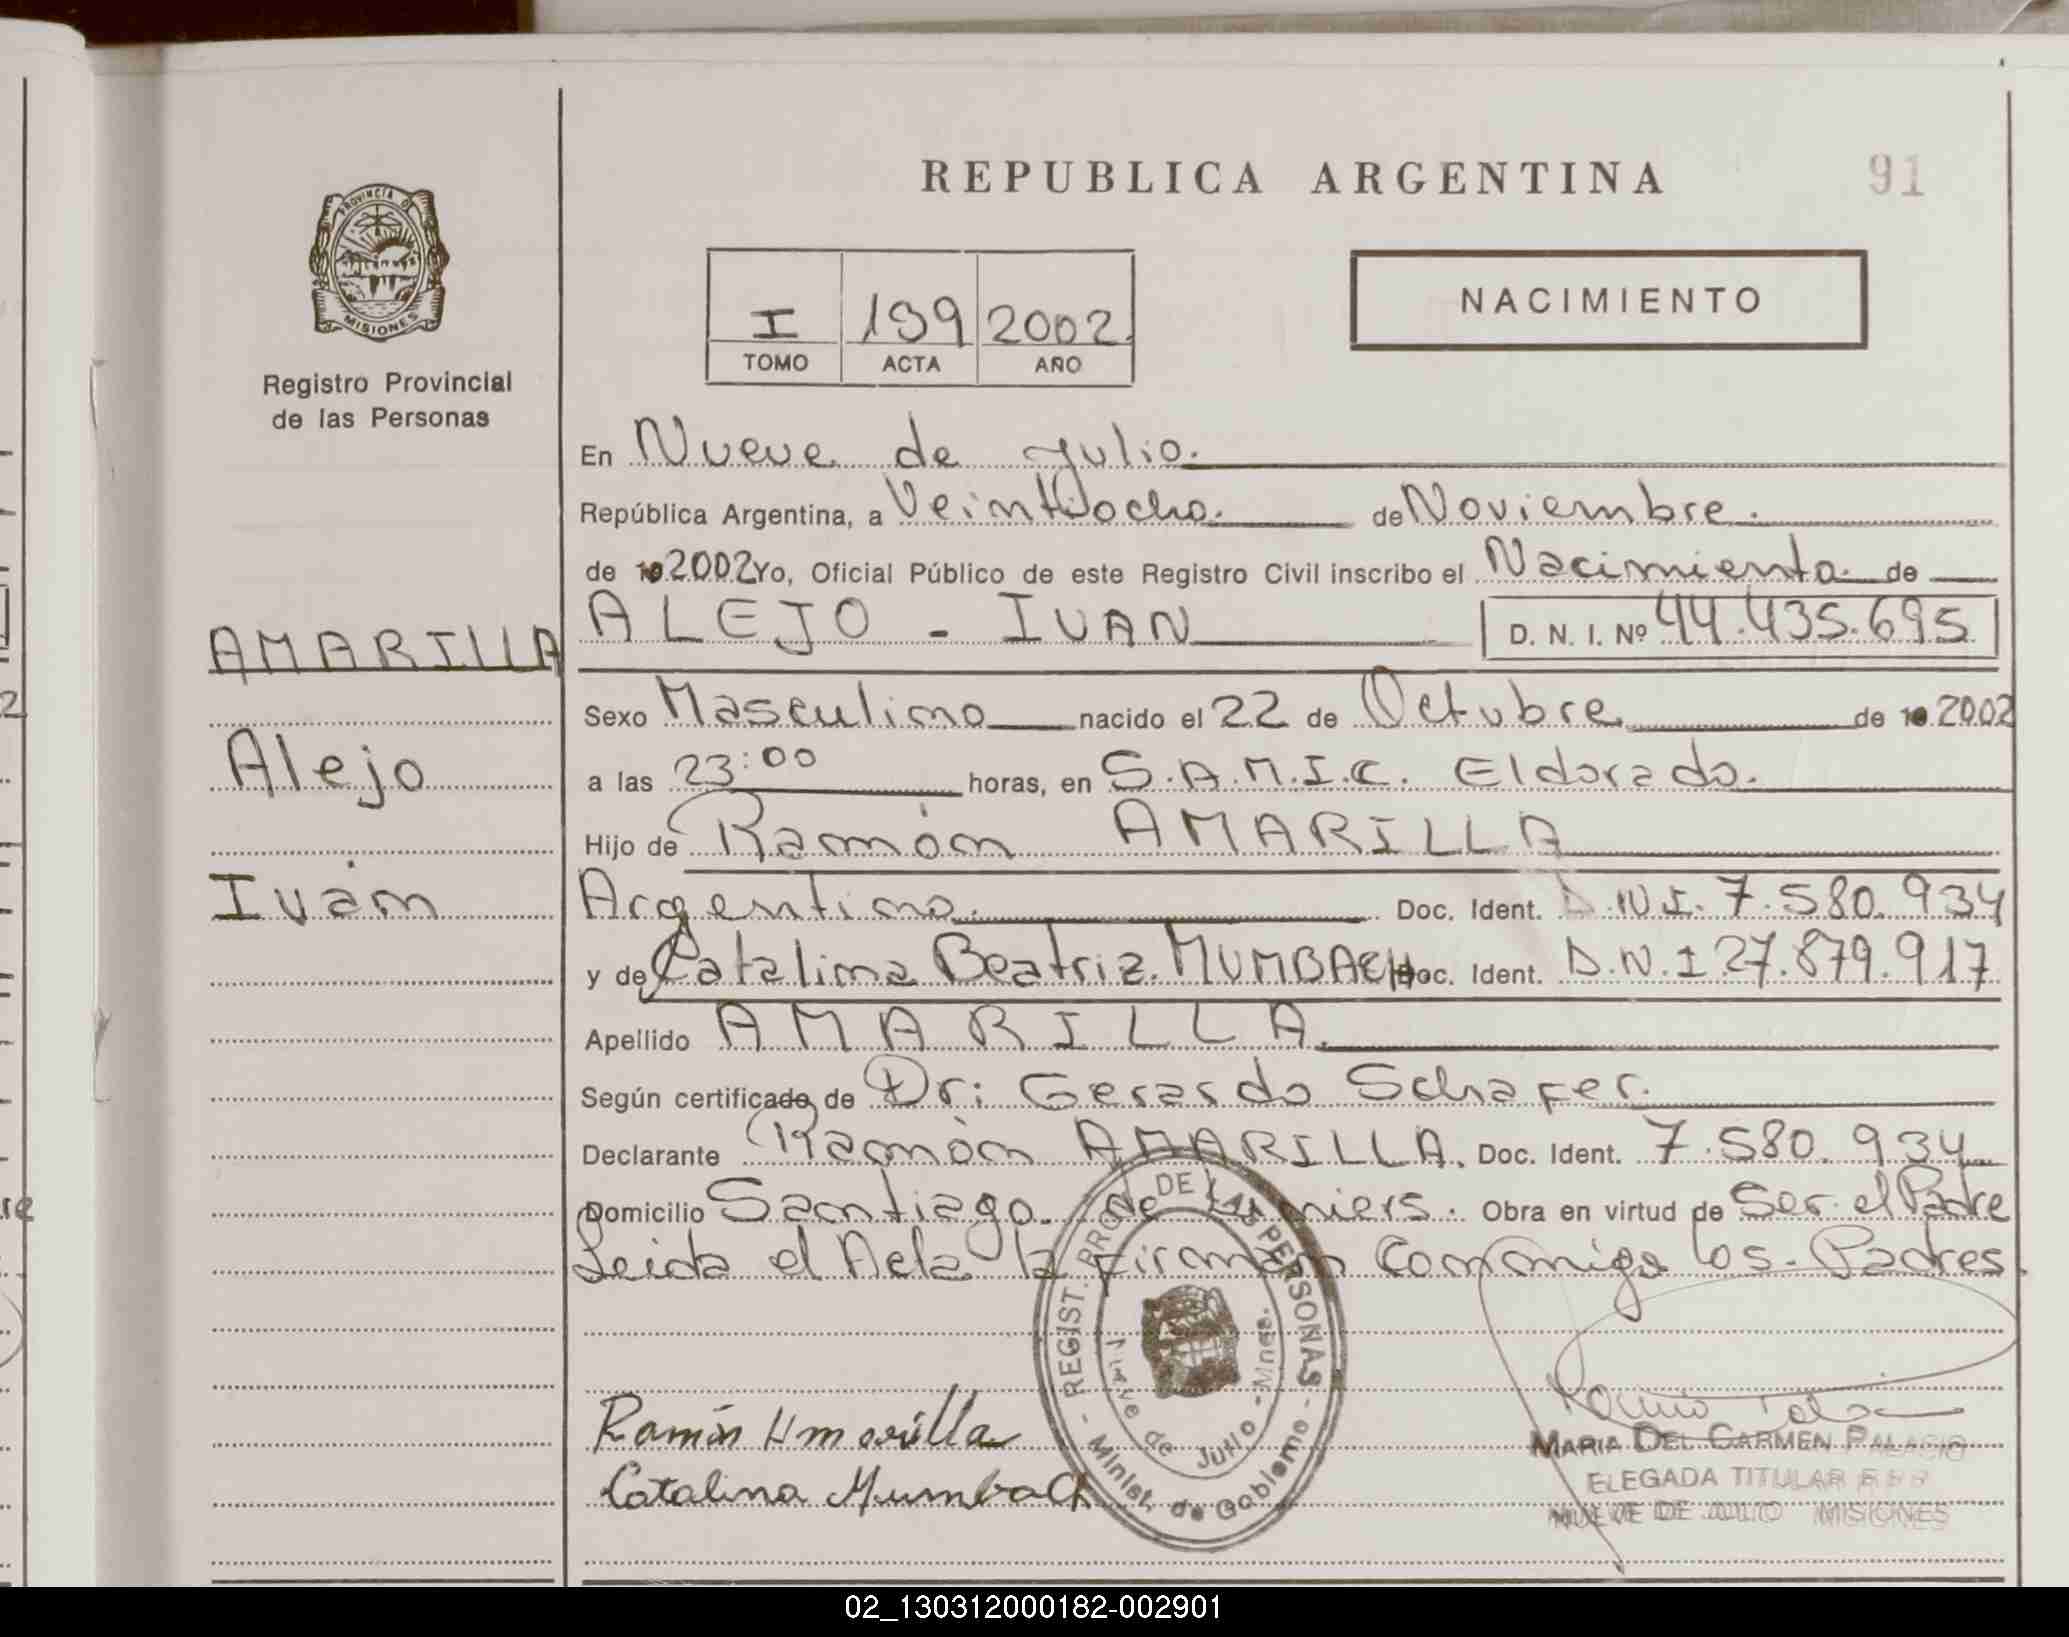 REPUBLICA ARGENTINA
91
PROVINCIA DE
MISIONES
Registro Provincial
de las Personas
I 139 2002
TOMO ACTA AÑO
NACIMIENTO
En Nueve de Julio.
República Argentina, a Veintiocho. de Noviembre.
de 2002 Yo, Oficial Público de este Registro Civil inscribo el Nacimiento de
ALEJO - IVAN D. N. I. Nº 44.435.695
AMARILLA
Alejo
Iván
Sexo Masculino nacido el 22 de Octubre de 2002
a las 23:00 horas, en S.A.M.I.C. Eldorado.
Hijo de Ramón AMARILLA
Argentino. Doc. Ident. D.N.I. 7.580.934
y de Catalina Beatriz. MUMBACH Doc. Ident. D.N.I 27.879.917
Apellido AMARILLA.
Según certificado de Dr: Gerardo Schafer.
Declarante Ramón AMARILLA. Doc. Ident. 7.580.934
Domicilio Santiago de Liniers. Obra en virtud de Ser el Padre
Leida el Acta la Firman Conmigo los Padres.
REGIST. PROV. DE LAS PERSONAS
Nueve de Julio - Mnes.
Minist. de Gobierno
Ramón Amarilla
Catalina Mumbach
MARIA DEL CARMEN PALACIO
ELEGADA TITULAR
NUEVE DE JULIO MISIONES
02_130312000182-002901